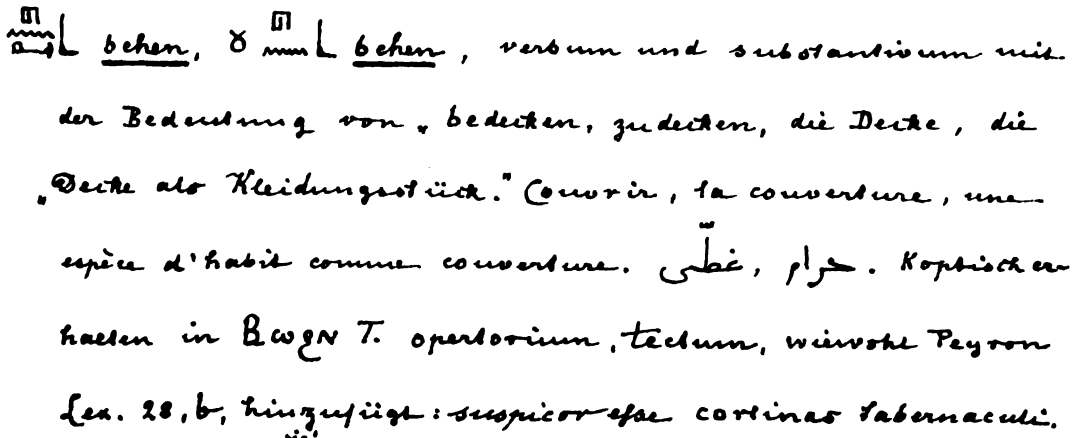 behen, behen, verbum und substantivum mit
der Bedeutung von „bedecken, zudecken, die Decke, die
„Decke als Kleidungsstück." Couvrir, la couverture, une
espèce d'habit comme couverture. غطّى, حرام. Koptisch er-
halten in ⲃⲱϩⲛ T. opertorium, tectum, wiewohl Peyron
Lex. 28, b, hinzufügt: suspicor esse cortinas tabernaculi.